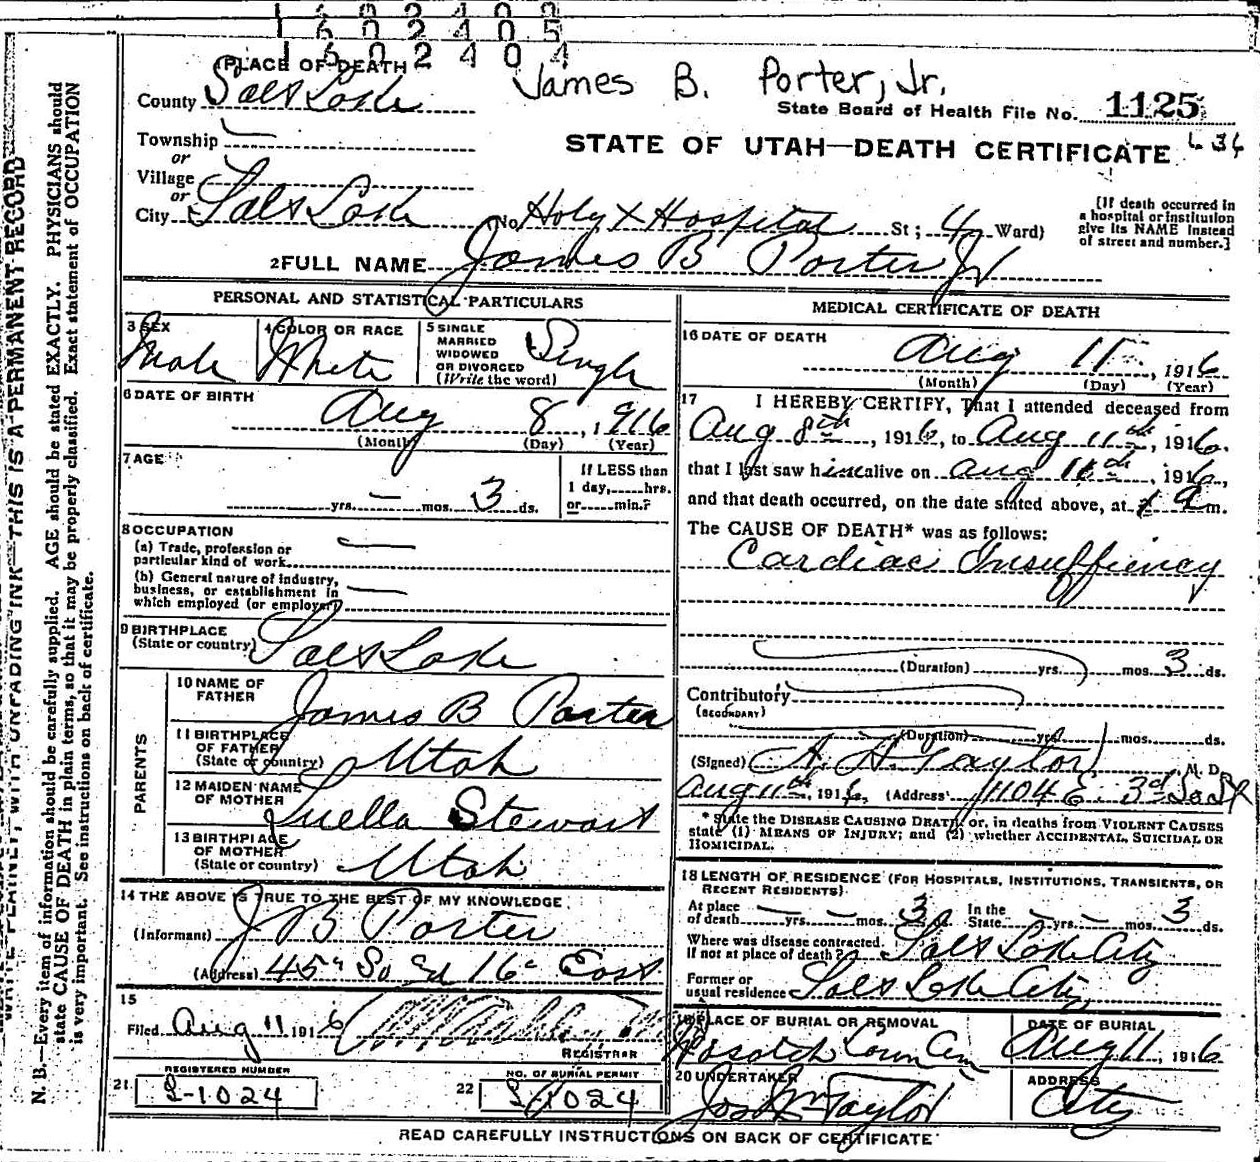 1602404
PLACE OF DEATH
James B. Porter, Jr.
County Salt Lake
State Board of Health File No. 1125
Township
or
STATE OF UTAH—DEATH CERTIFICATE
634
Village
or
City Salt Lake (No Holy X Hospital St; 4 Ward)
[If death occurred in
a hospital or institution
give its NAME instead
of street and number.]
2 FULL NAME James B Porter Jr
PERSONAL AND STATISTICAL PARTICULARS
3 SEX Male
4 COLOR OR RACE White
5 SINGLE
MARRIED
WIDOWED
OR DIVORCED
(Write the word) Single
6 DATE OF BIRTH
Aug 8, 1916
(Month) (Day) (Year)
7 AGE
yrs. — mos. 3 ds.
If LESS than
1 day, hrs.
or min.?
8 OCCUPATION
(a) Trade, profession or
particular kind of work
(b) General nature of industry,
business, or establishment in
which employed (or employer)
9 BIRTHPLACE
(State or country) Salt Lake
PARENTS
10 NAME OF
FATHER James B Porter
11 BIRTHPLACE
OF FATHER
(State or country) Utah
12 MAIDEN NAME
OF MOTHER Luella Stewart
13 BIRTHPLACE
OF MOTHER
(State or country) Utah
14 THE ABOVE IS TRUE TO THE BEST OF MY KNOWLEDGE
(Informant) J B Porter
(Address) 45" So Ed 16" East
15
Filed Aug 11 1916
REGISTRAR
REGISTERED NUMBER
21 S-1024
NO. OF BURIAL PERMIT
22 S-1024
MEDICAL CERTIFICATE OF DEATH
16 DATE OF DEATH
Aug 11, 1916
(Month) (Day) (Year)
17 I HEREBY CERTIFY, That I attended deceased from
Aug 8th, 1916, to Aug 11th, 1916.
that I last saw him alive on Aug 11th, 1916,
and that death occurred, on the date stated above, at a m.
The CAUSE OF DEATH* was as follows:
Cardiac Insuffiency
(Duration) yrs. mos. 3 ds.
Contributory
(SECONDARY)
(Duration) yrs. mos. ds.
(Signed) A. H. Taylor M. D.
Aug 11th, 1916, (Address) 1104 E. 3d So St
* State the DISEASE CAUSING DEATH, or, in deaths from VIOLENT CAUSES
state (1) MEANS OF INJURY; and (2) whether ACCIDENTAL, SUICIDAL OR
HOMICIDAL.
18 LENGTH OF RESIDENCE (FOR HOSPITALS, INSTITUTIONS, TRANSIENTS, OR
RECENT RESIDENTS)
At place
of death — yrs. — mos. 3 d.
In the
State — yrs. — mos. 3 ds.
Where was disease contracted,
if not at place of death? Salt Lake City
Former or
usual residence Salt Lake City
19 PLACE OF BURIAL OR REMOVAL
Wasatch Lawn Cem
DATE OF BURIAL
Aug 11, 1916
20 UNDERTAKER
Jos Wm Taylor
ADDRESS
City
READ CAREFULLY INSTRUCTIONS ON BACK OF CERTIFICATE
WRITE PLAINLY, WITH UNFADING INK—THIS IS A PERMANENT RECORD
N. B.—Every item of information should be carefully supplied. AGE should be stated EXACTLY. PHYSICIANS should
state CAUSE OF DEATH in plain terms, so that it may be properly classified. Exact statement of OCCUPATION
is very important. See instructions on back of certificate.